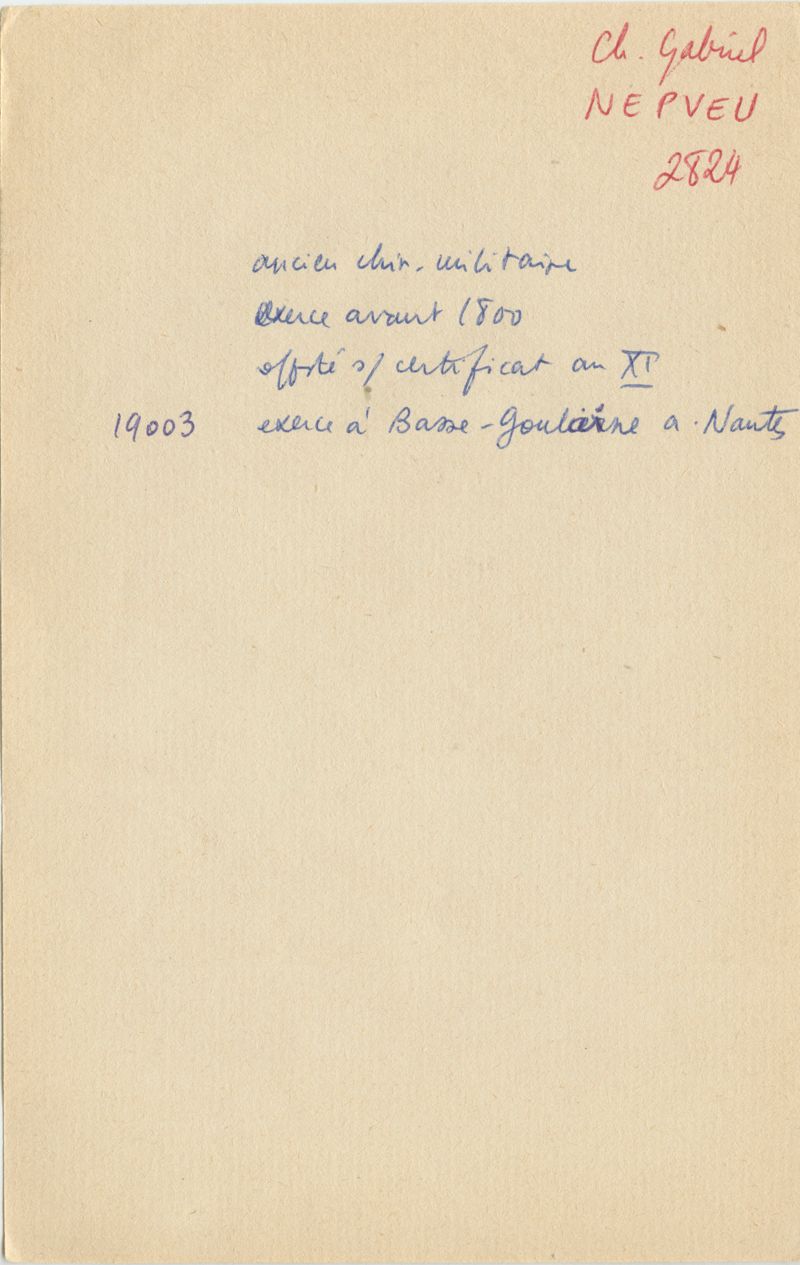 Ch. Gabriel
NEPVEU
2824
ancien chir. militaire
exerce avant 1800
s/ certificat an XI
19003 exerce à Basse-Goulaine a Nantes